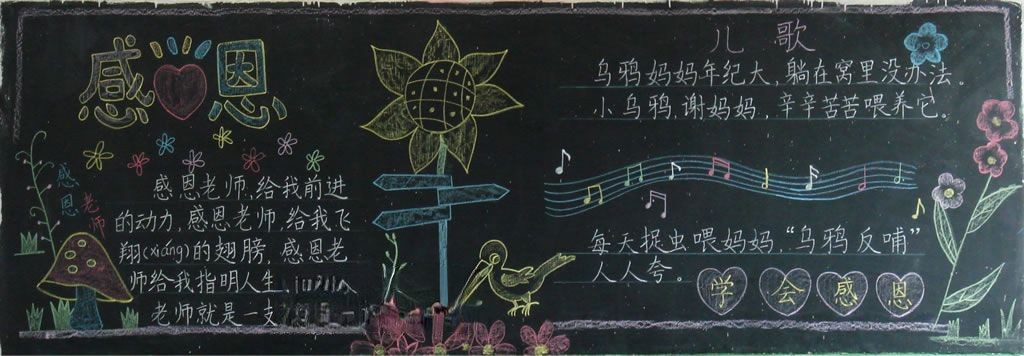 感恩
感恩
老师
感恩老师,给我前进
的动力,感恩老师,给我飞
翔(xiáng)的翅膀,感恩老
师给我指明人生
老师就是一支
儿歌
乌鸦妈妈年纪大,躺在窝里没办法。
小乌鸦,谢妈妈,辛辛苦苦喂养它。
每天捉虫喂妈妈,“乌鸦反哺”
人人夸。
学会感恩